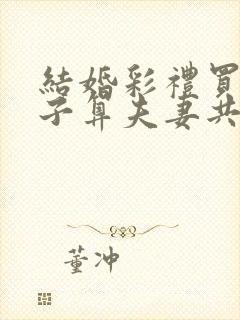 結婚彩禮買
子算夫妻共
董沖